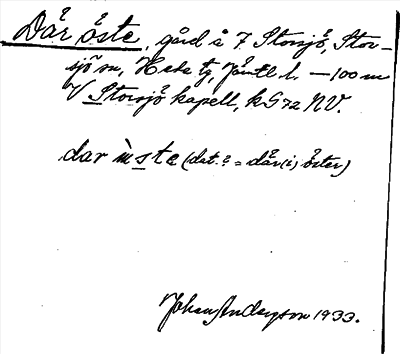 Där öste, gård å 7 Storsjö, Stor-
sjö sn, Hede tg, Jämtl l. — 100 m
V Storsjö kapell, kG72 NV.
dar ùste (dat.? = där(i) öster)
Johan Anderson 1933.